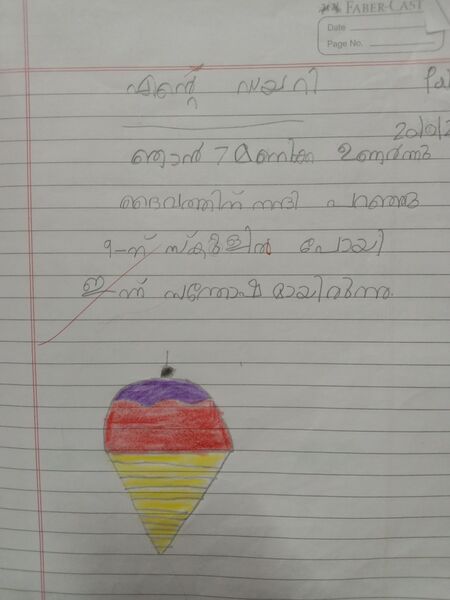 FABER-CAST
Date
Page No.
എന്റെ ഡയറി
ഞാൻ 7 മണിക്ക ഉണർന്നു
ദൈവത്തിന് നന്ദി പറഞ്ഞു
9-ന് സ്കൂളിൽ പോയി
ഇന്ന് സന്തോഷമായിരുന്നു.